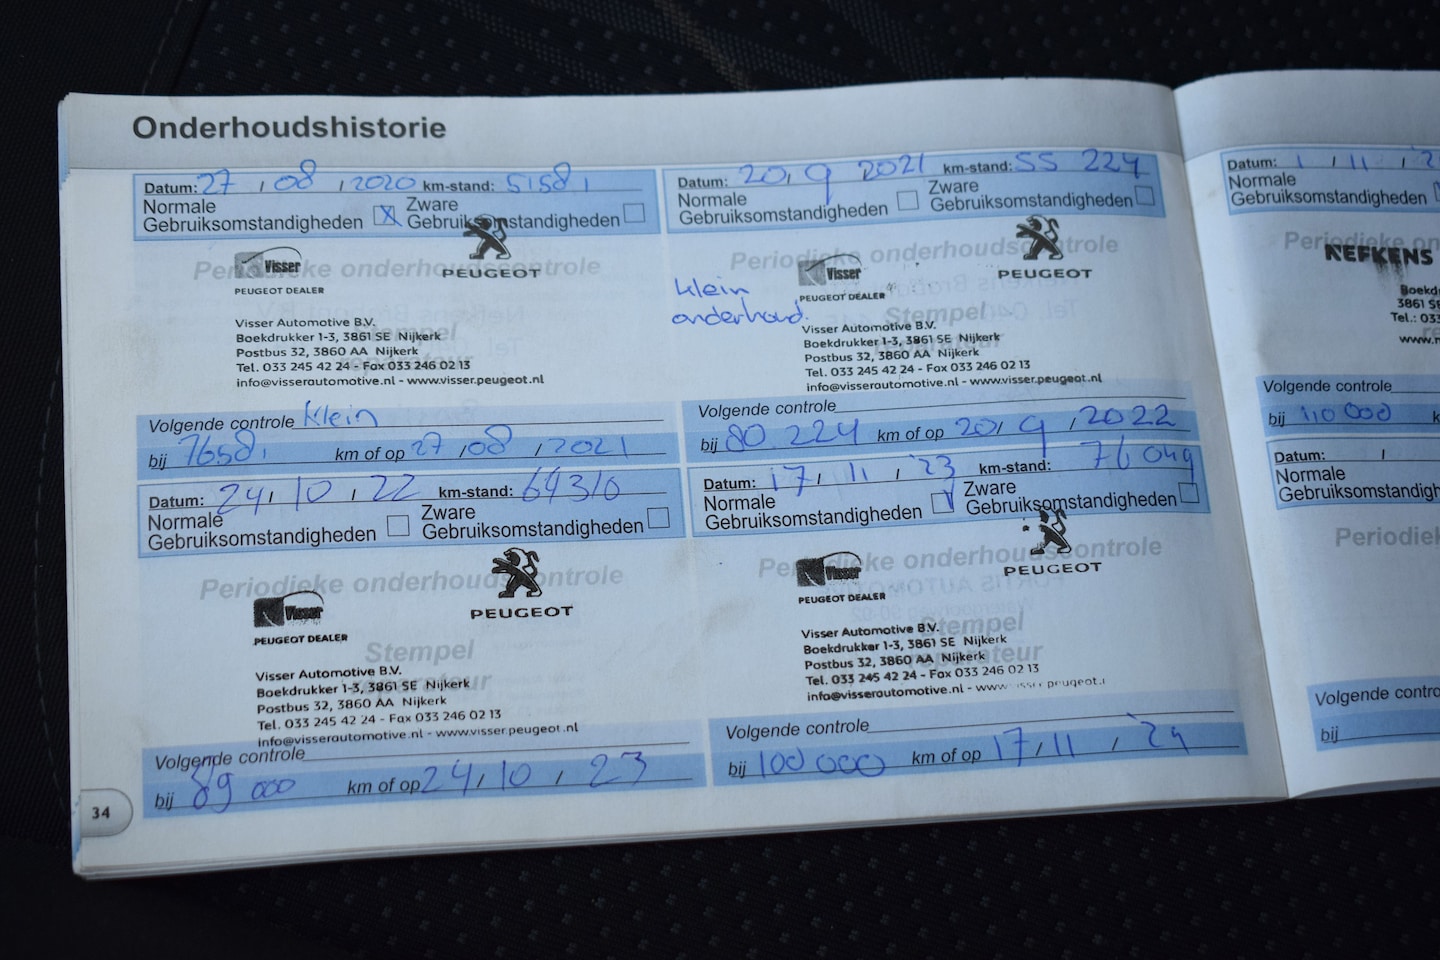 Onderhoudshistorie
Datum: 27 / 08 / 2020 km-stand: 51581
Normale
Gebruiksomstandigheden
Zware
Gebruiksomstandigheden
Periodieke onderhoudscontrole
Visser
PEUGEOT DEALER
PEUGEOT
Stempel
reparateur
Visser Automotive B.V.
Boekdrukker 1-3, 3861 SE Nijkerk
Postbus 32, 3860 AA Nijkerk
Tel. 033 245 42 24 - Fax 033 246 02 13
info@visserautomotive.nl - www.visser.peugeot.nl
Volgende controle Klein
bij 76581 km of op 27 / 08 / 2021
Datum: 20 / 9 / 2021 km-stand: 55 224
Normale
Gebruiksomstandigheden
Zware
Gebruiksomstandigheden
Periodieke onderhoudscontrole
klein
onderhoud.
Visser
PEUGEOT DEALER
PEUGEOT
Stempel
reparateur
Visser Automotive B.V.
Boekdrukker 1-3, 3861 SE Nijkerk
Postbus 32, 3860 AA Nijkerk
Tel. 033 245 42 24 - Fax 033 246 02 13
info@visserautomotive.nl - www.visser.peugeot.nl
Volgende controle
bij 80.224 km of op 20 / 9 / 2022
Datum: 24 / 10 / 22 km-stand: 64310
Normale
Gebruiksomstandigheden
Zware
Gebruiksomstandigheden
Periodieke onderhoudscontrole
Visser
PEUGEOT DEALER
PEUGEOT
Stempel
reparateur
Visser Automotive B.V.
Boekdrukker 1-3, 3861 SE Nijkerk
Postbus 32, 3860 AA Nijkerk
Tel. 033 245 42 24 - Fax 033 246 02 13
info@visserautomotive.nl - www.visser.peugeot.nl
Volgende controle
bij 89 000 km of op 24 / 10 / 23
Datum: 17 / 11 / '23 km-stand: 76 049
Normale
Gebruiksomstandigheden
Zware
Gebruiksomstandigheden
Periodieke onderhoudscontrole
Visser
PEUGEOT DEALER
PEUGEOT
Stempel
reparateur
Visser Automotive B.V.
Boekdrukker 1-3, 3861 SE Nijkerk
Postbus 32, 3860 AA Nijkerk
Tel. 033 245 42 24 - Fax 033 246 02 13
info@visserautomotive.nl - www peugeot.
Volgende controle
bij 100 000 km of op 17 / 11 / '24
34
Datum: 1 / 11 / '2
Normale
Gebruiksomstandigheden
Periodieke on
NEFKENS
Boekd
3861 SE
Tel.: 033
www.n
Volgende controle
bij 110 000 k
Datum: /
Normale
Gebruiksomstandigh
Periodiek
Volgende contro
bij